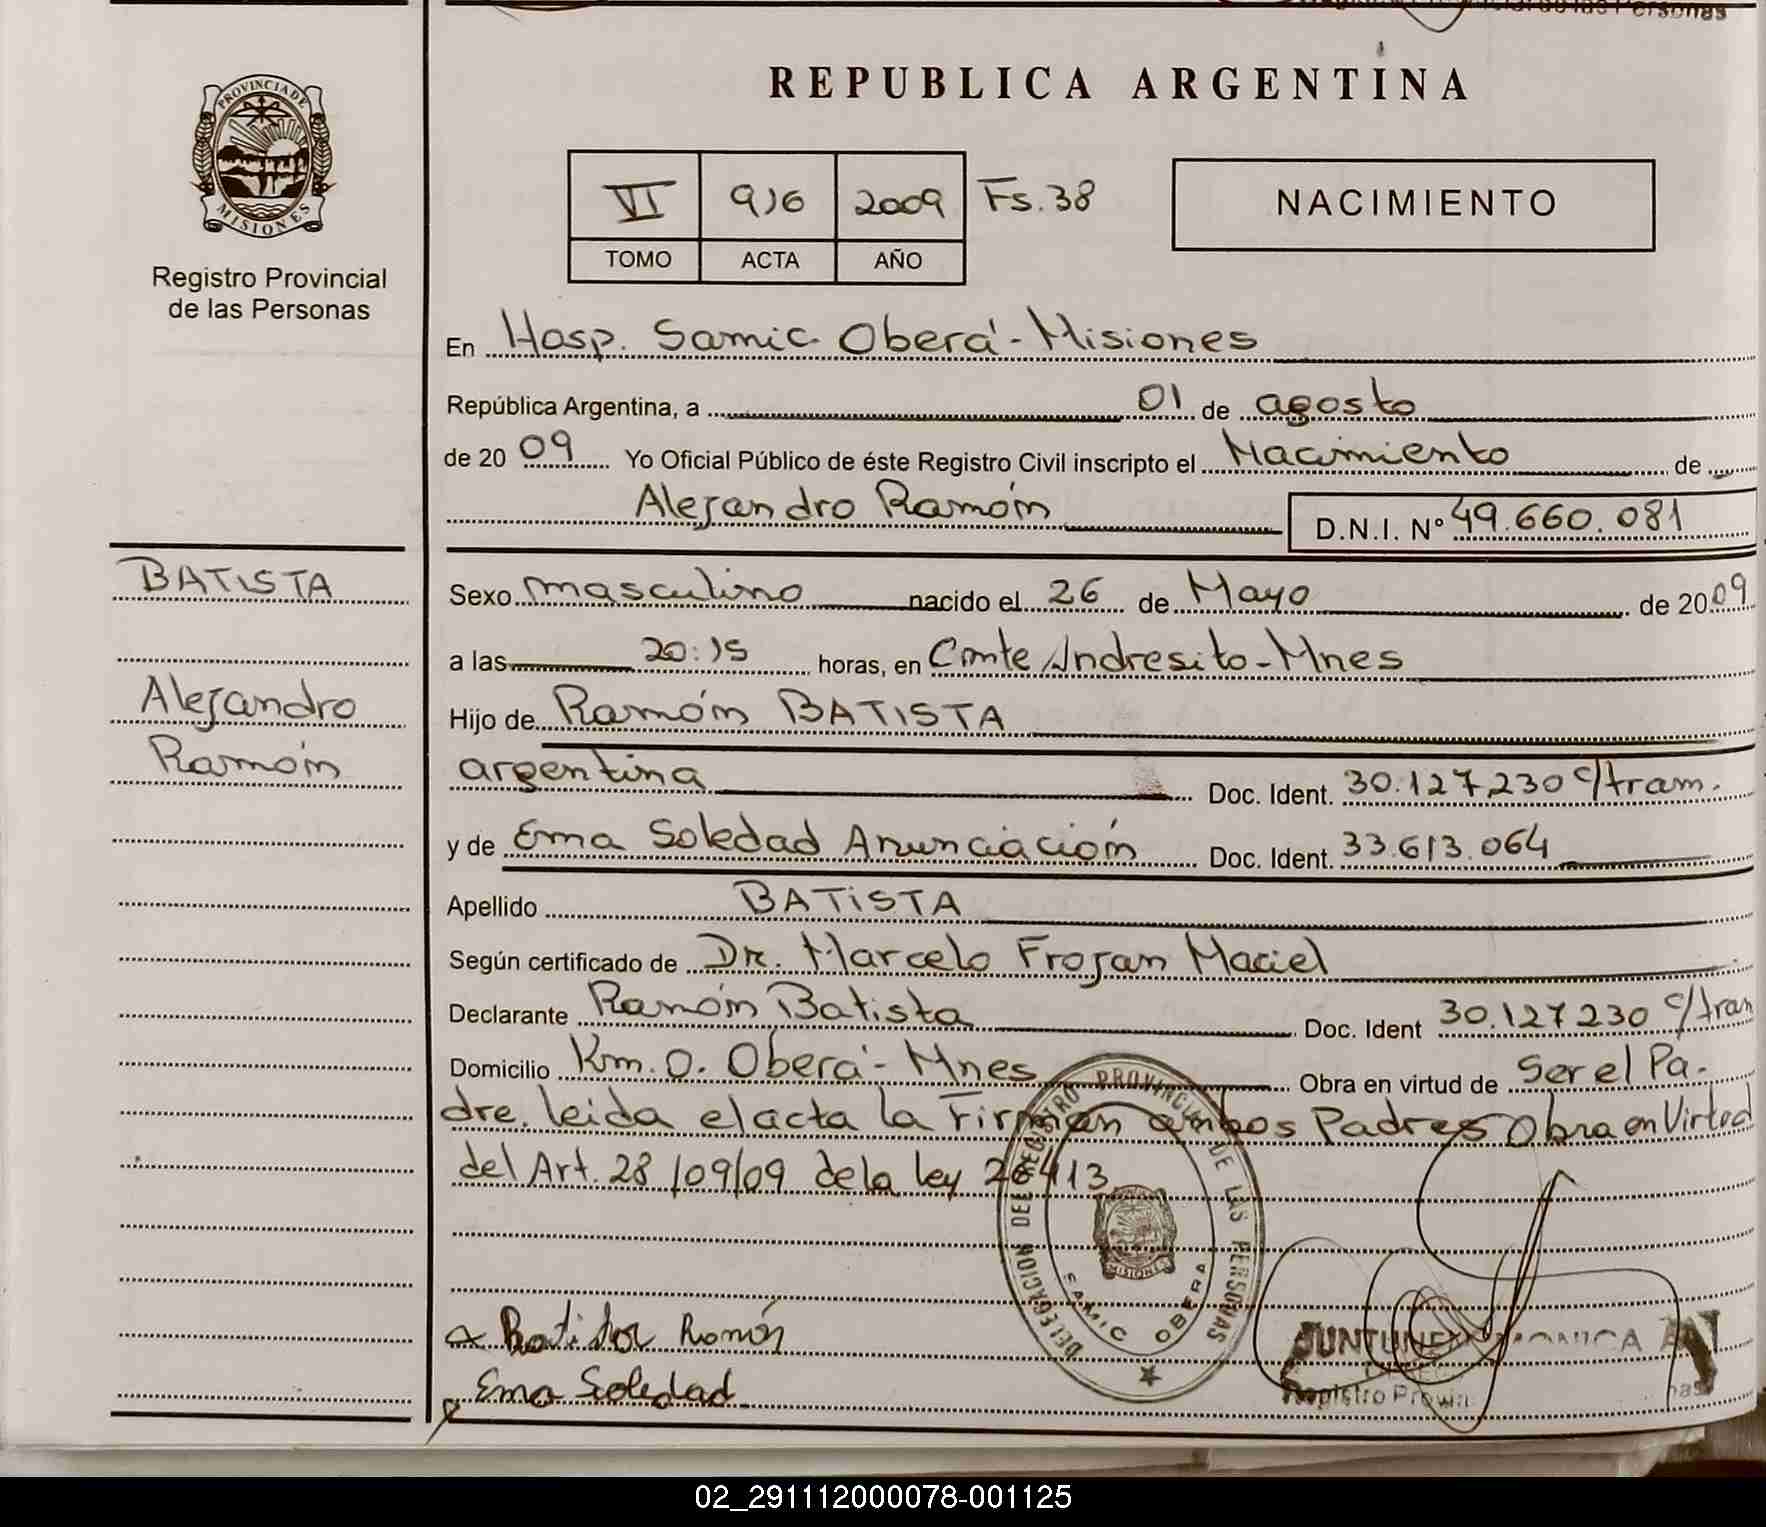 de las Personas
PROVINCIA DE
MISIONES
Registro Provincial
de las Personas
REPUBLICA ARGENTINA
VI 916 2009 Fs. 38
TOMO ACTA AÑO
NACIMIENTO
En Hosp. Samic Oberá - Misiones
República Argentina, a 01 de agosto
de 2009 Yo Oficial Público de éste Registro Civil inscripto el Nacimiento de
Alejandro Ramón D.N.I. Nº 49.660.081
BATISTA
Alejandro
Ramón
Sexo masculino nacido el 26 de Mayo de 2009
a las 20:15 horas, en Cmte Andresito - Mnes
Hijo de Ramón BATISTA
argentina Doc. Ident. 30.127.230 c/tram.
y de Ema Soledad Anunciación Doc. Ident. 33.613.064
Apellido BATISTA
Según certificado de Dr. Marcelo Frojan Maciel
Declarante Ramón Batista Doc. Ident 30.127230 c/tram
Domicilio Km. 0. Oberá - Mnes Obra en virtud de Ser el Pa-
dre. leida el acta la Firman ambos Padres Obra en Virtud
del Art. 28 /09/09 de la ley 26413
DELEGACION DEL REGISTRO PROVINCIAL DE LAS PERSONAS
SAMIC OBERA
MISIONES
Ramón
Ema Soledad
MONICA
Registro
02_291112000078-001125